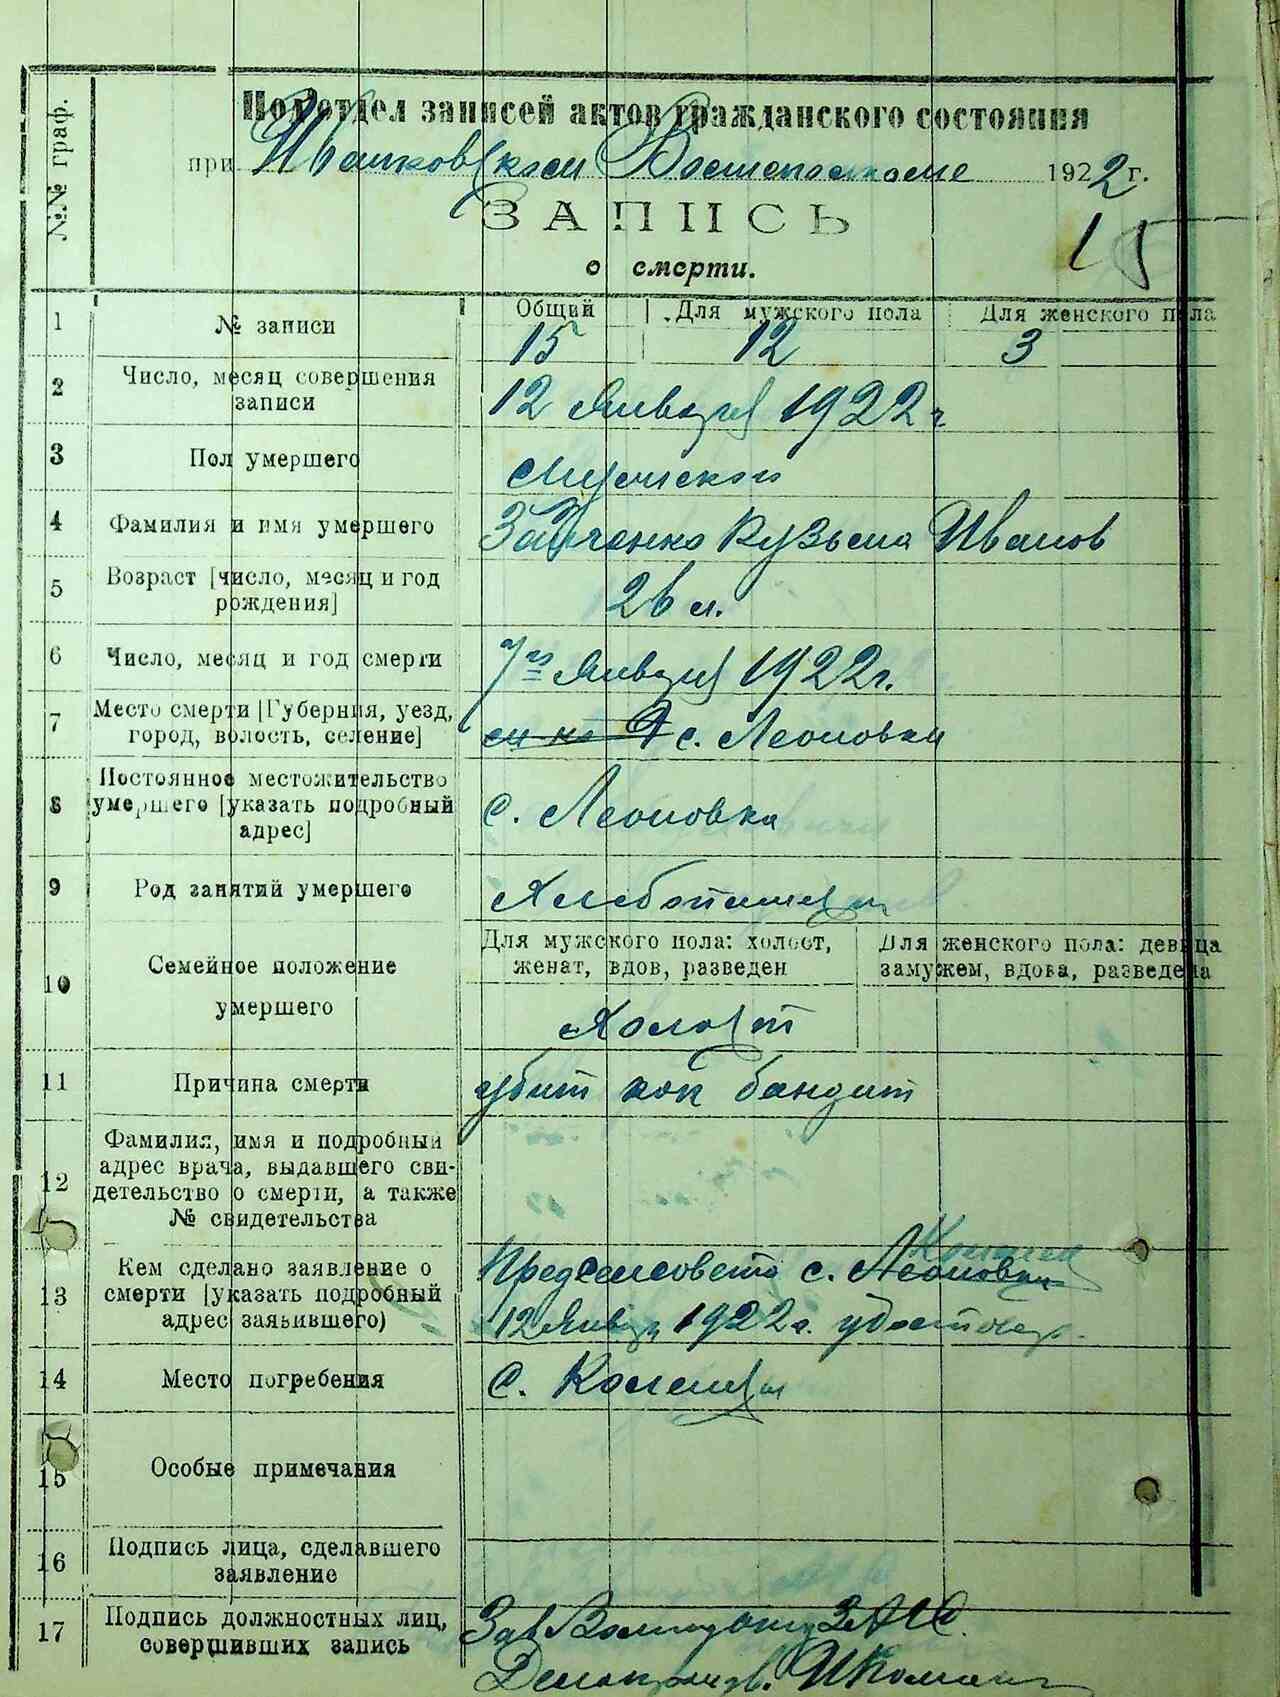 №№ граф.
Подотдел записей актов гражданского состояния
при Ивановском 1922 г.
ЗАПИСЬ
о смерти.
15
1 № записи Общий Для мужского пола Для женского пола
15 12 3
2 Число, месяц совершения
записи
12 Января 1922 г
3 Пол умершего Мужской
4 Фамилия и имя умершего Зайченко Кузьма Иванов
5 Возраст [число, месяц и год
рождения]
26 л.
6 Число, месяц и год смерти 7го Января 1922 г.
7 Место смерти [Губерния, уезд,
город, волость, селение]
с. Леоновки
8 Постоянное местожительство
умершего [указать подробный
адрес]
с. Леоновка
9 Род занятий умершего Хлебопашец
10 Семейное положение
умершего
Для мужского пола: холост,
женат, вдов, разведен
Для женского пола: девица
замужем, вдова, разведена
Холост
11 Причина смерти убит как бандит
12 Фамилия, имя и подробный
адрес врача, выдавшего сви-
детельство о смерти, а также
№ свидетельства
13 Кем сделано заявление о
смерти [указать подробный
адрес заявившего)
Предсельсовета с. Леоновки
12 Января 1922 г.
14 Место погребения с.
15 Особые примечания
16 Подпись лица, сделавшего
заявление
17 Подпись должностных лиц,
совершивших запись
Зав ЗАГС